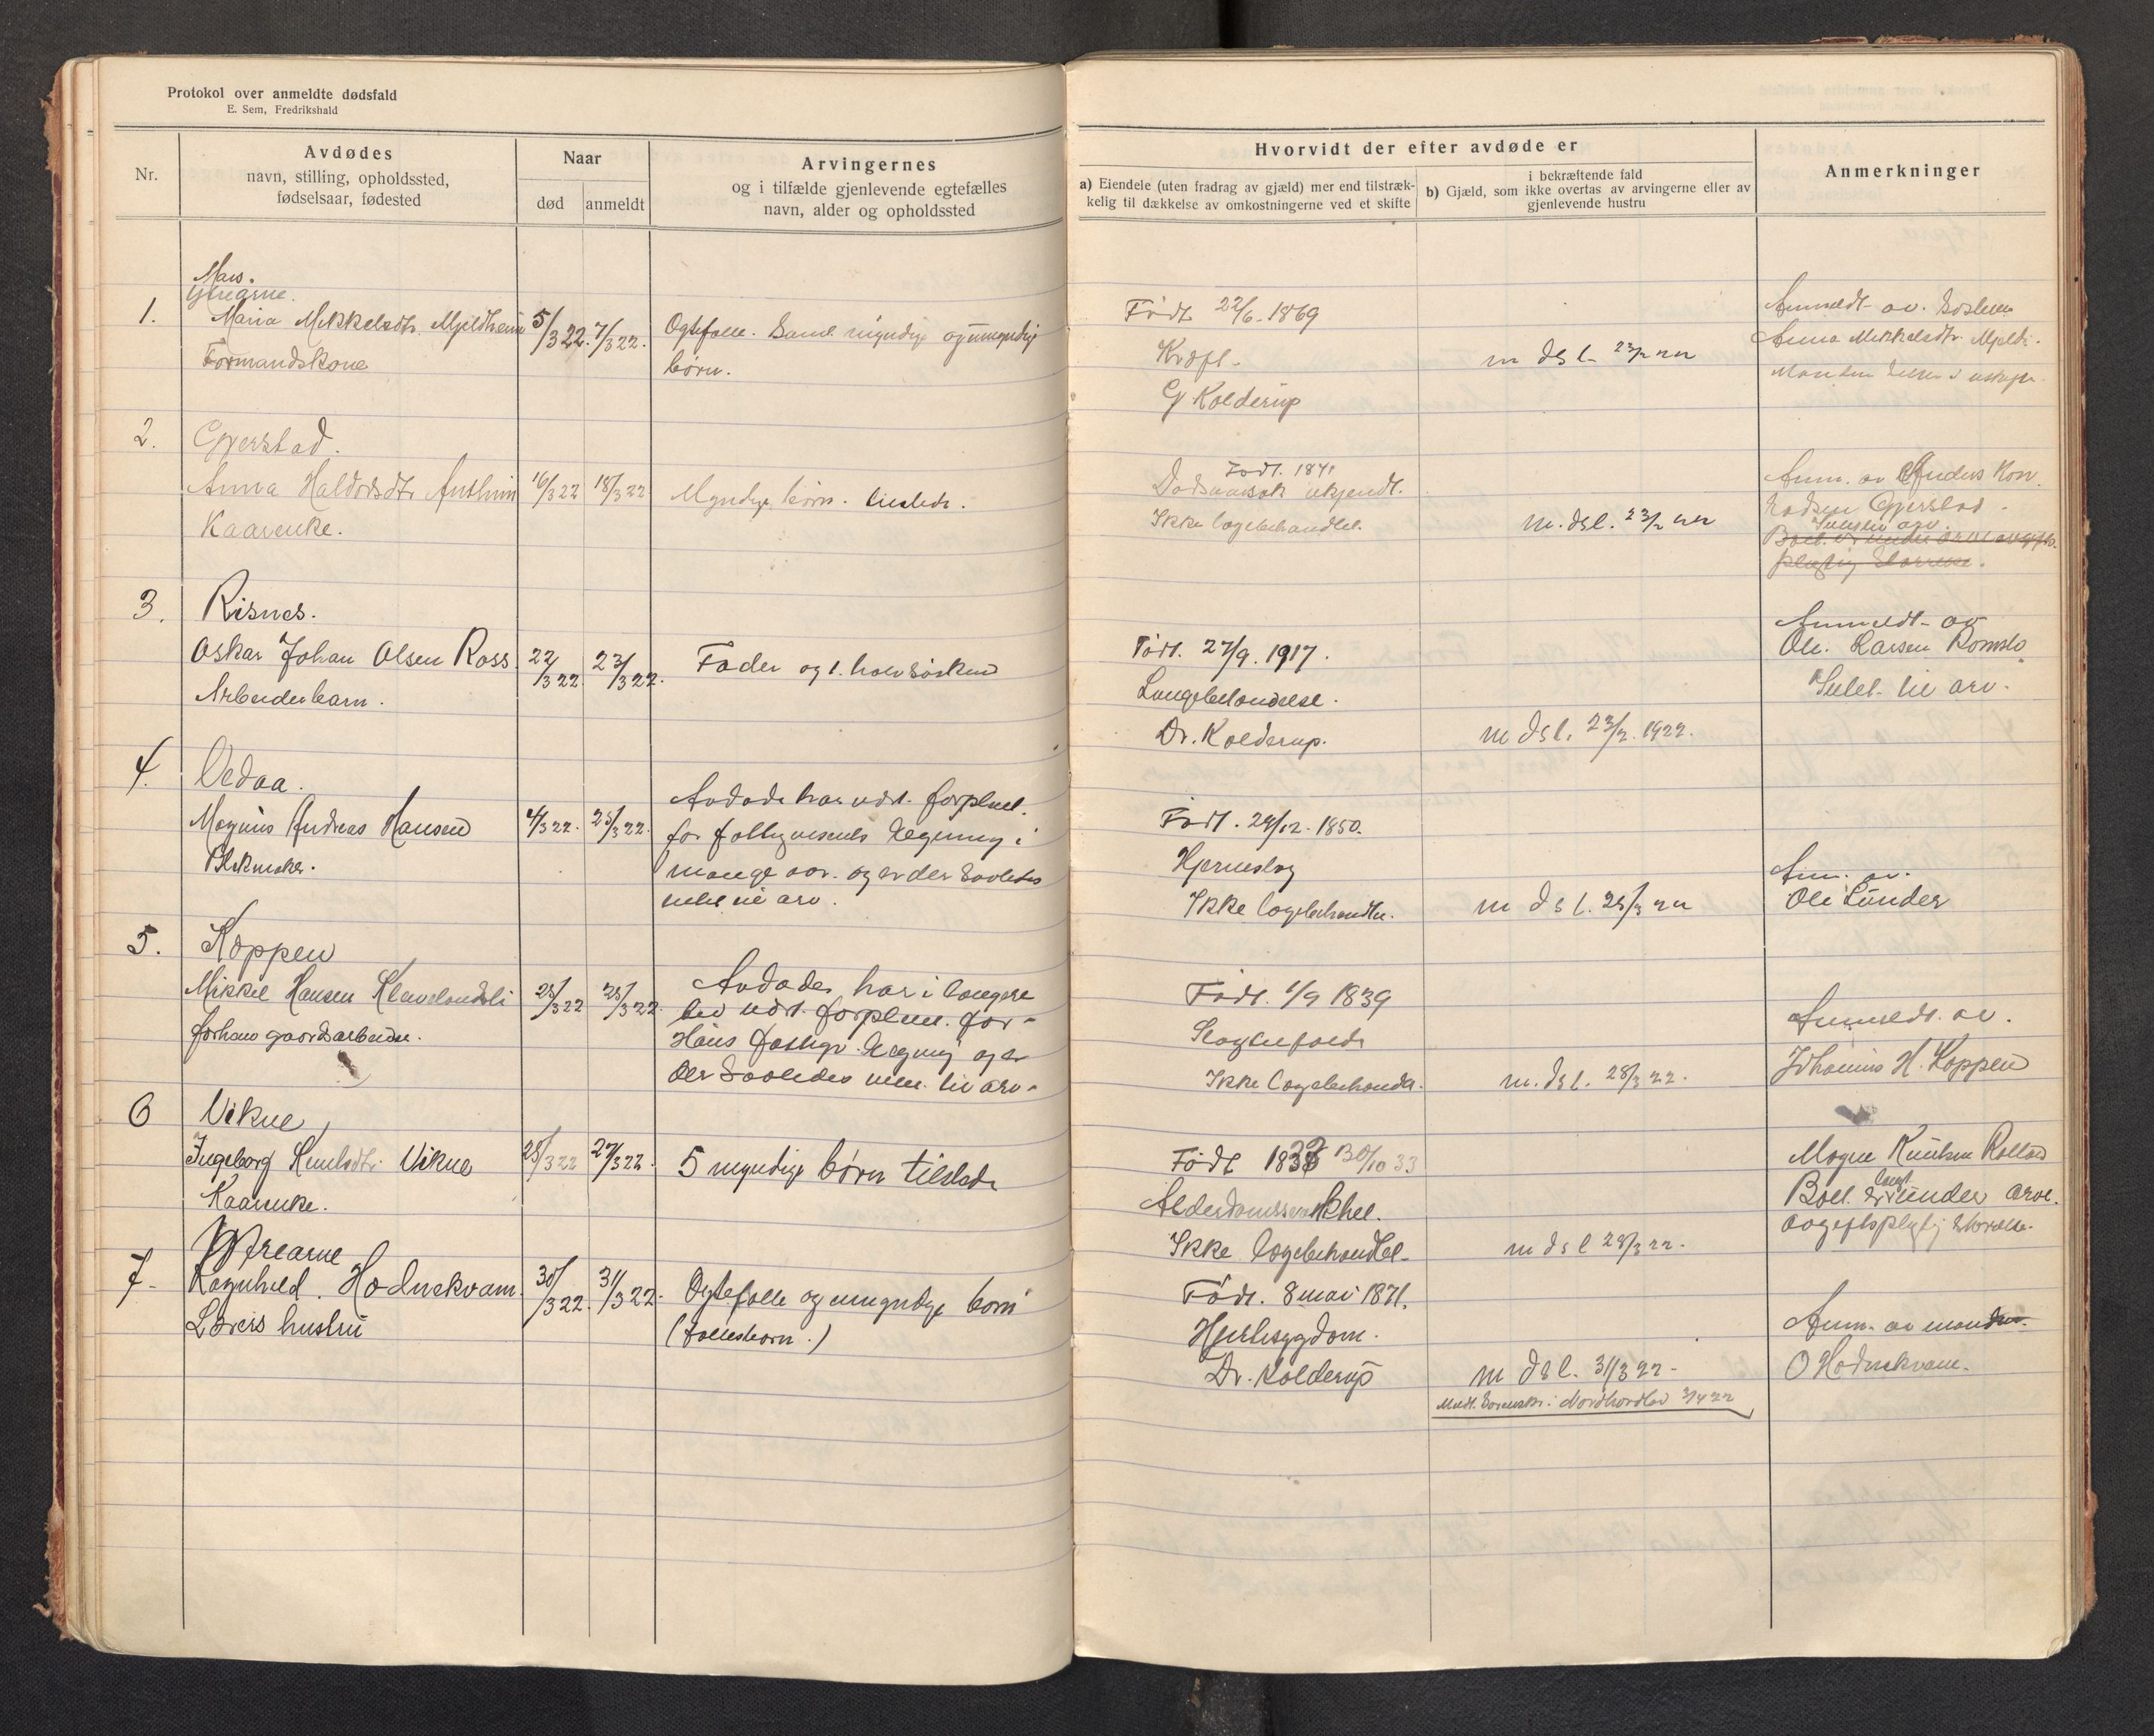 Protokol over anmeldte dødsfald
E. Sem, Fredrikshald
Nr.
Avdødes
navn, stilling, opholdssted,
fødselsaar, fødested
Naar
død
anmeldt
Arvingernes
og i tilfælde gjenlevende egtefælles
navn, alder og opholdssted
Hvorvidt der efter avdøde er
a) Eiendele (uten fradrag av gjæld) mer end tilstræk-
kelig til dækkelse av omkostningerne ved et skifte
i bekræftende fald
b) Gjæld, som ikke overtas av arvingerne eller av
gjenlevende hustru
Anmerkninger
Mars.
1.
Maria Mikkelsdtr. Mjeldheim
Formandskone
5/3 22.
7/3 22.
børn.
Født 22/6 1869
Kræft
G Kolderup
m dsl
Anmeldt av
Anna Mikkelsdtr.
2.
Gjerstad.
Anna Haldorsdtr
Kaarenke.
16/3 22
18/3 22
Myndige børn.
Født. 1841
Dødsaarsak ukjendt.
Ikke lægebehandlet.
m. dsl.
Anm. av Anders Kon
Gjerstad.
3.
Risnes.
Oskar Johan Olsen Ross
Arbeiderbarn.
22/3 22
23/3 22.
Fader og 1. halvsøsken
Født. 27/9. 1917.
Lungebetændelse.
Dr. Kolderup.
m dsl. 23/3. 1922.
Anmeldt av
Ole Larsen Romslo
Intet til arv.
4.
Vedaa.
Magnus Andreas Hansen
4/3 22.
25/3 22.
Avdøde har vært forpleiet
for fattigvesenets Regning i
mange aar. og er der saaledes
intet til arv.
Født. 29/12. 1850.
Hjerneslag
Ikke lægebehandlet.
m dsl. 25/3 22
Anm. av.
Ole Lunder
5.
Koppen
Mikkel Hansen Klevelandsli
forhen gaardsarbeider.
25/3 22
25/3 22.
Avdøde har i længere
tid vært forpleiet for
Haus fattigv. Regning og er
der saaledes intet til arv.
Født. 1/9 1839
Ikke lægebehandlet.
m. dsl. 28/3 22.
Anmeldt av.
Johannes H. Koppen
6
Vikne
Ingeborg Knutsdtr. Vikne
Kaarenke.
25/3 22
27/3 22.
5 myndige børn tilstede
Født 1833 30/10 33
Alderdomssvakhet.
Ikke lægebehandlet
m dsl 28/3 22.
Magne Knutsen
Boet er under arve
avgiftspligtig størrelse.
7
Ragnhild. Hodnekvam
Lærers hustru
30/3 22.
31/3 22.
Egtefælle og umyndige børn
(fællesbørn.)
Født. 8 mai 1871.
Hjertesygdom.
Dr. Kolderup
m dsl. 31/3 22.
Meldt Sorenskr. i Nordhordland 3/4 22
Anm. av manden.
O Hodnekvam.